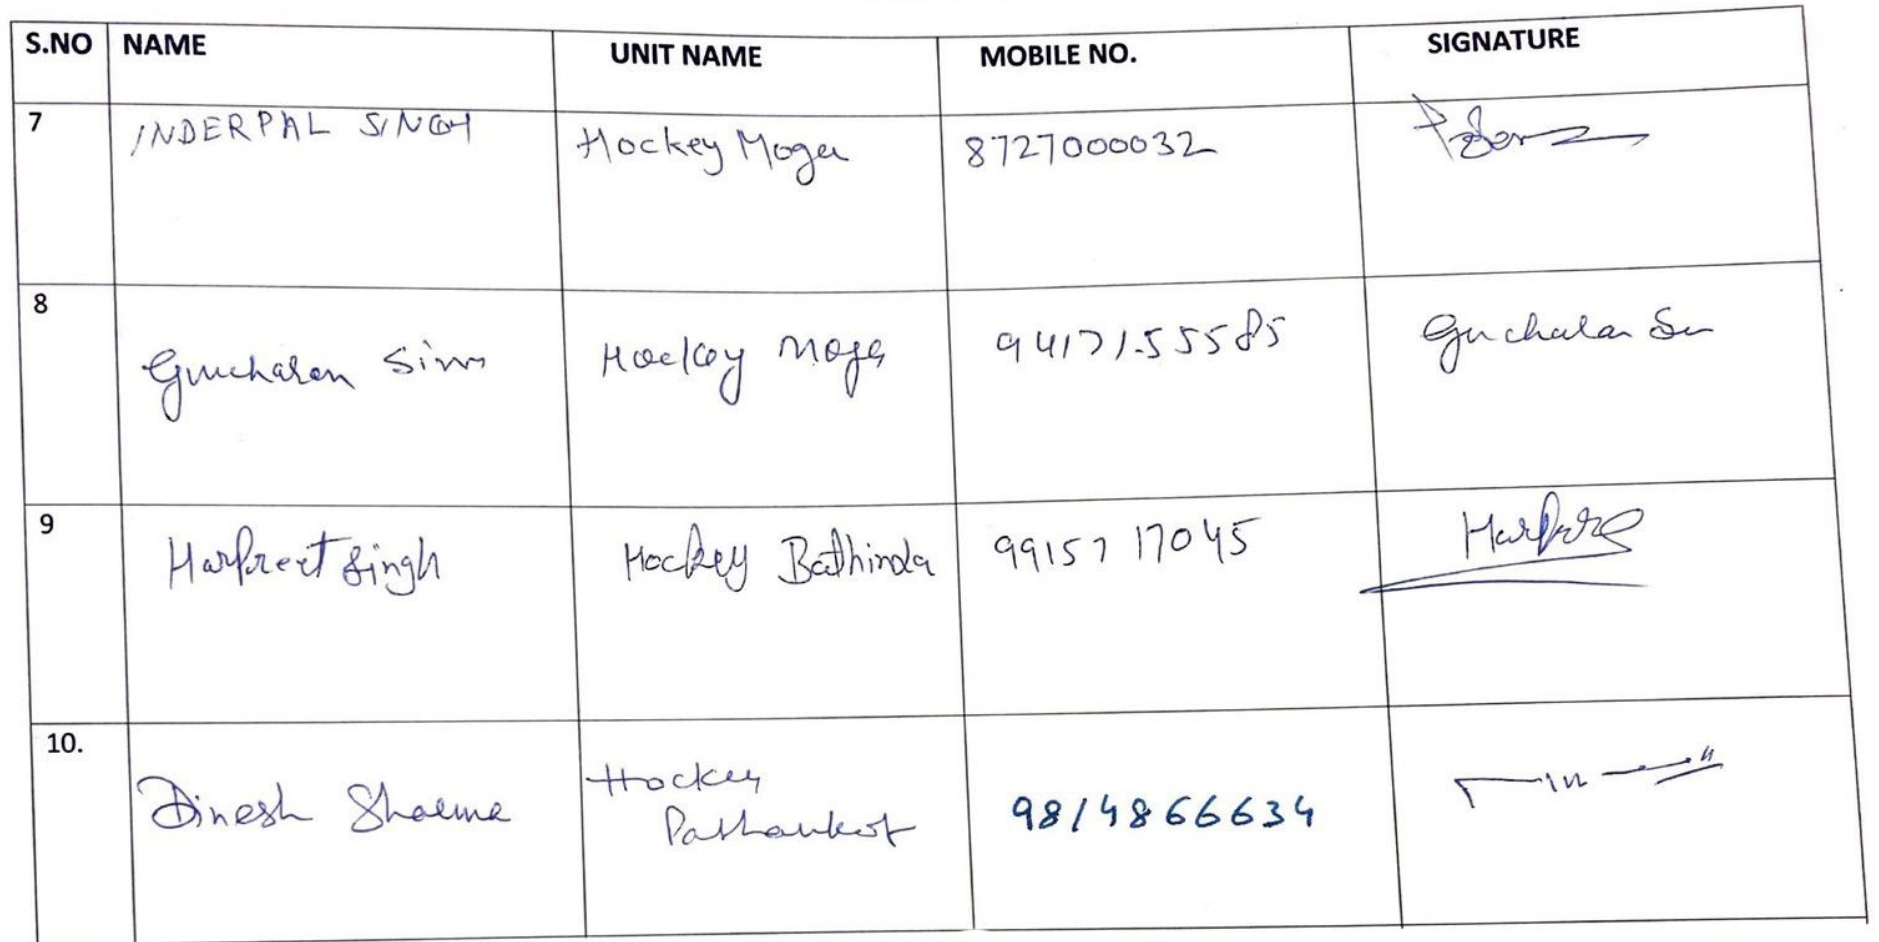 S.NO NAME UNIT NAME MOBILE NO. SIGNATURE
7 INDERPAL SINGH Hockey Moga 8727000032
8 Gurcharan Hockey Moga 9417155585 Gurcharan
9 Harpreet Singh Hockey Bathinda 9915717045
10. Dinesh Sharma Hockey 9814866634
Pathankot